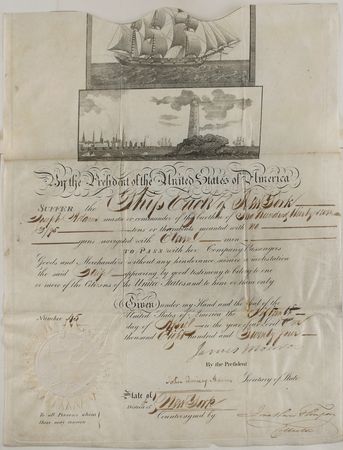 By the President of the United States of America
SUFFER the Ship of New York
Joseph master or commander of the burthen of One hundred
tons or thereabouts mounted with no
guns navigated with men
TO PASS with her Company Passengers
Goods and Merchandize without any hinderance seizure or molestation
the said Ship appearing by good testimony to belong to one
or more of the Citizens of the United States and to him or them only
Given under my Hand and the Seal of the
United States of America the
day of April in the year of our Lord One
thousand Eight hundred and twenty four
Number 45
James Monroe
By the President
John Quincy Adams Secretary of State
State of
District of New York
To all Persons whom
these may concern
Countersigned by
Jonathan Thompson
Collector